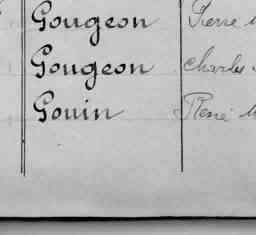 Gougeon Pierre
Gougeon Charles
Gouin René